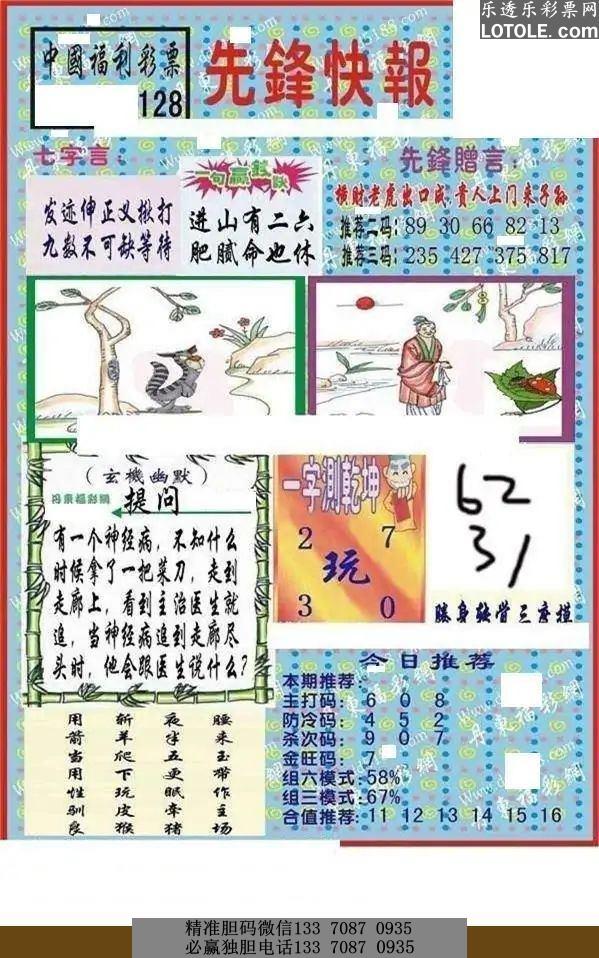 乐透乐彩票网
LOTOLE.COM
中國福利彩票
128
先鋒快報
七字言：
发迹伸正义揪打
九数不可缺等待
一句赢钱诀
进山有二六
肥腻命也休
先鋒贈言：
横财老虎出口成,贵人上门来子孙
推荐二码：89 30 66 82 13
推荐三码：235 427 375 817
（玄機幽默）
丹東福彩網
提问
有一个神经病，不知什么
时候拿了一把菜刀，走到
走廊上，看到主治医生就
追，当神经病追到走廊尽
头时，他会跟医生说什么？
一字测乾坤
2 7
玩
3 0
62
31
今日推荐
本期推荐：
主打码：6 0 8
防冷码：4 5 2
杀次码：9 0 7
金旺码：7
组六模式：58%
组三模式：67%
合值推荐：11 12 13 14 15 16
用箭当用性驯良
斩羊爬下玩皮猴
夜半五更眠牵猪
腰来玉带作主场
精准胆码微信133 7087 0935
必赢独胆电话133 7087 0935